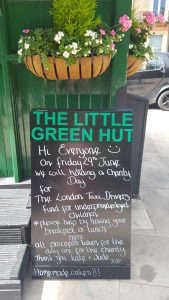 THE LITTLE
GREEN HUT
Hi Everyone
On friday 29th June
we will holding a Charity
Day
for
The London Taxi Drivers
Fund for underprivileged
Children
*please help by having your
breakfast or lunch
here
all proceeds taken for the
day are for the charity
Thank you Kate + Jade
Homemade cakes!!!